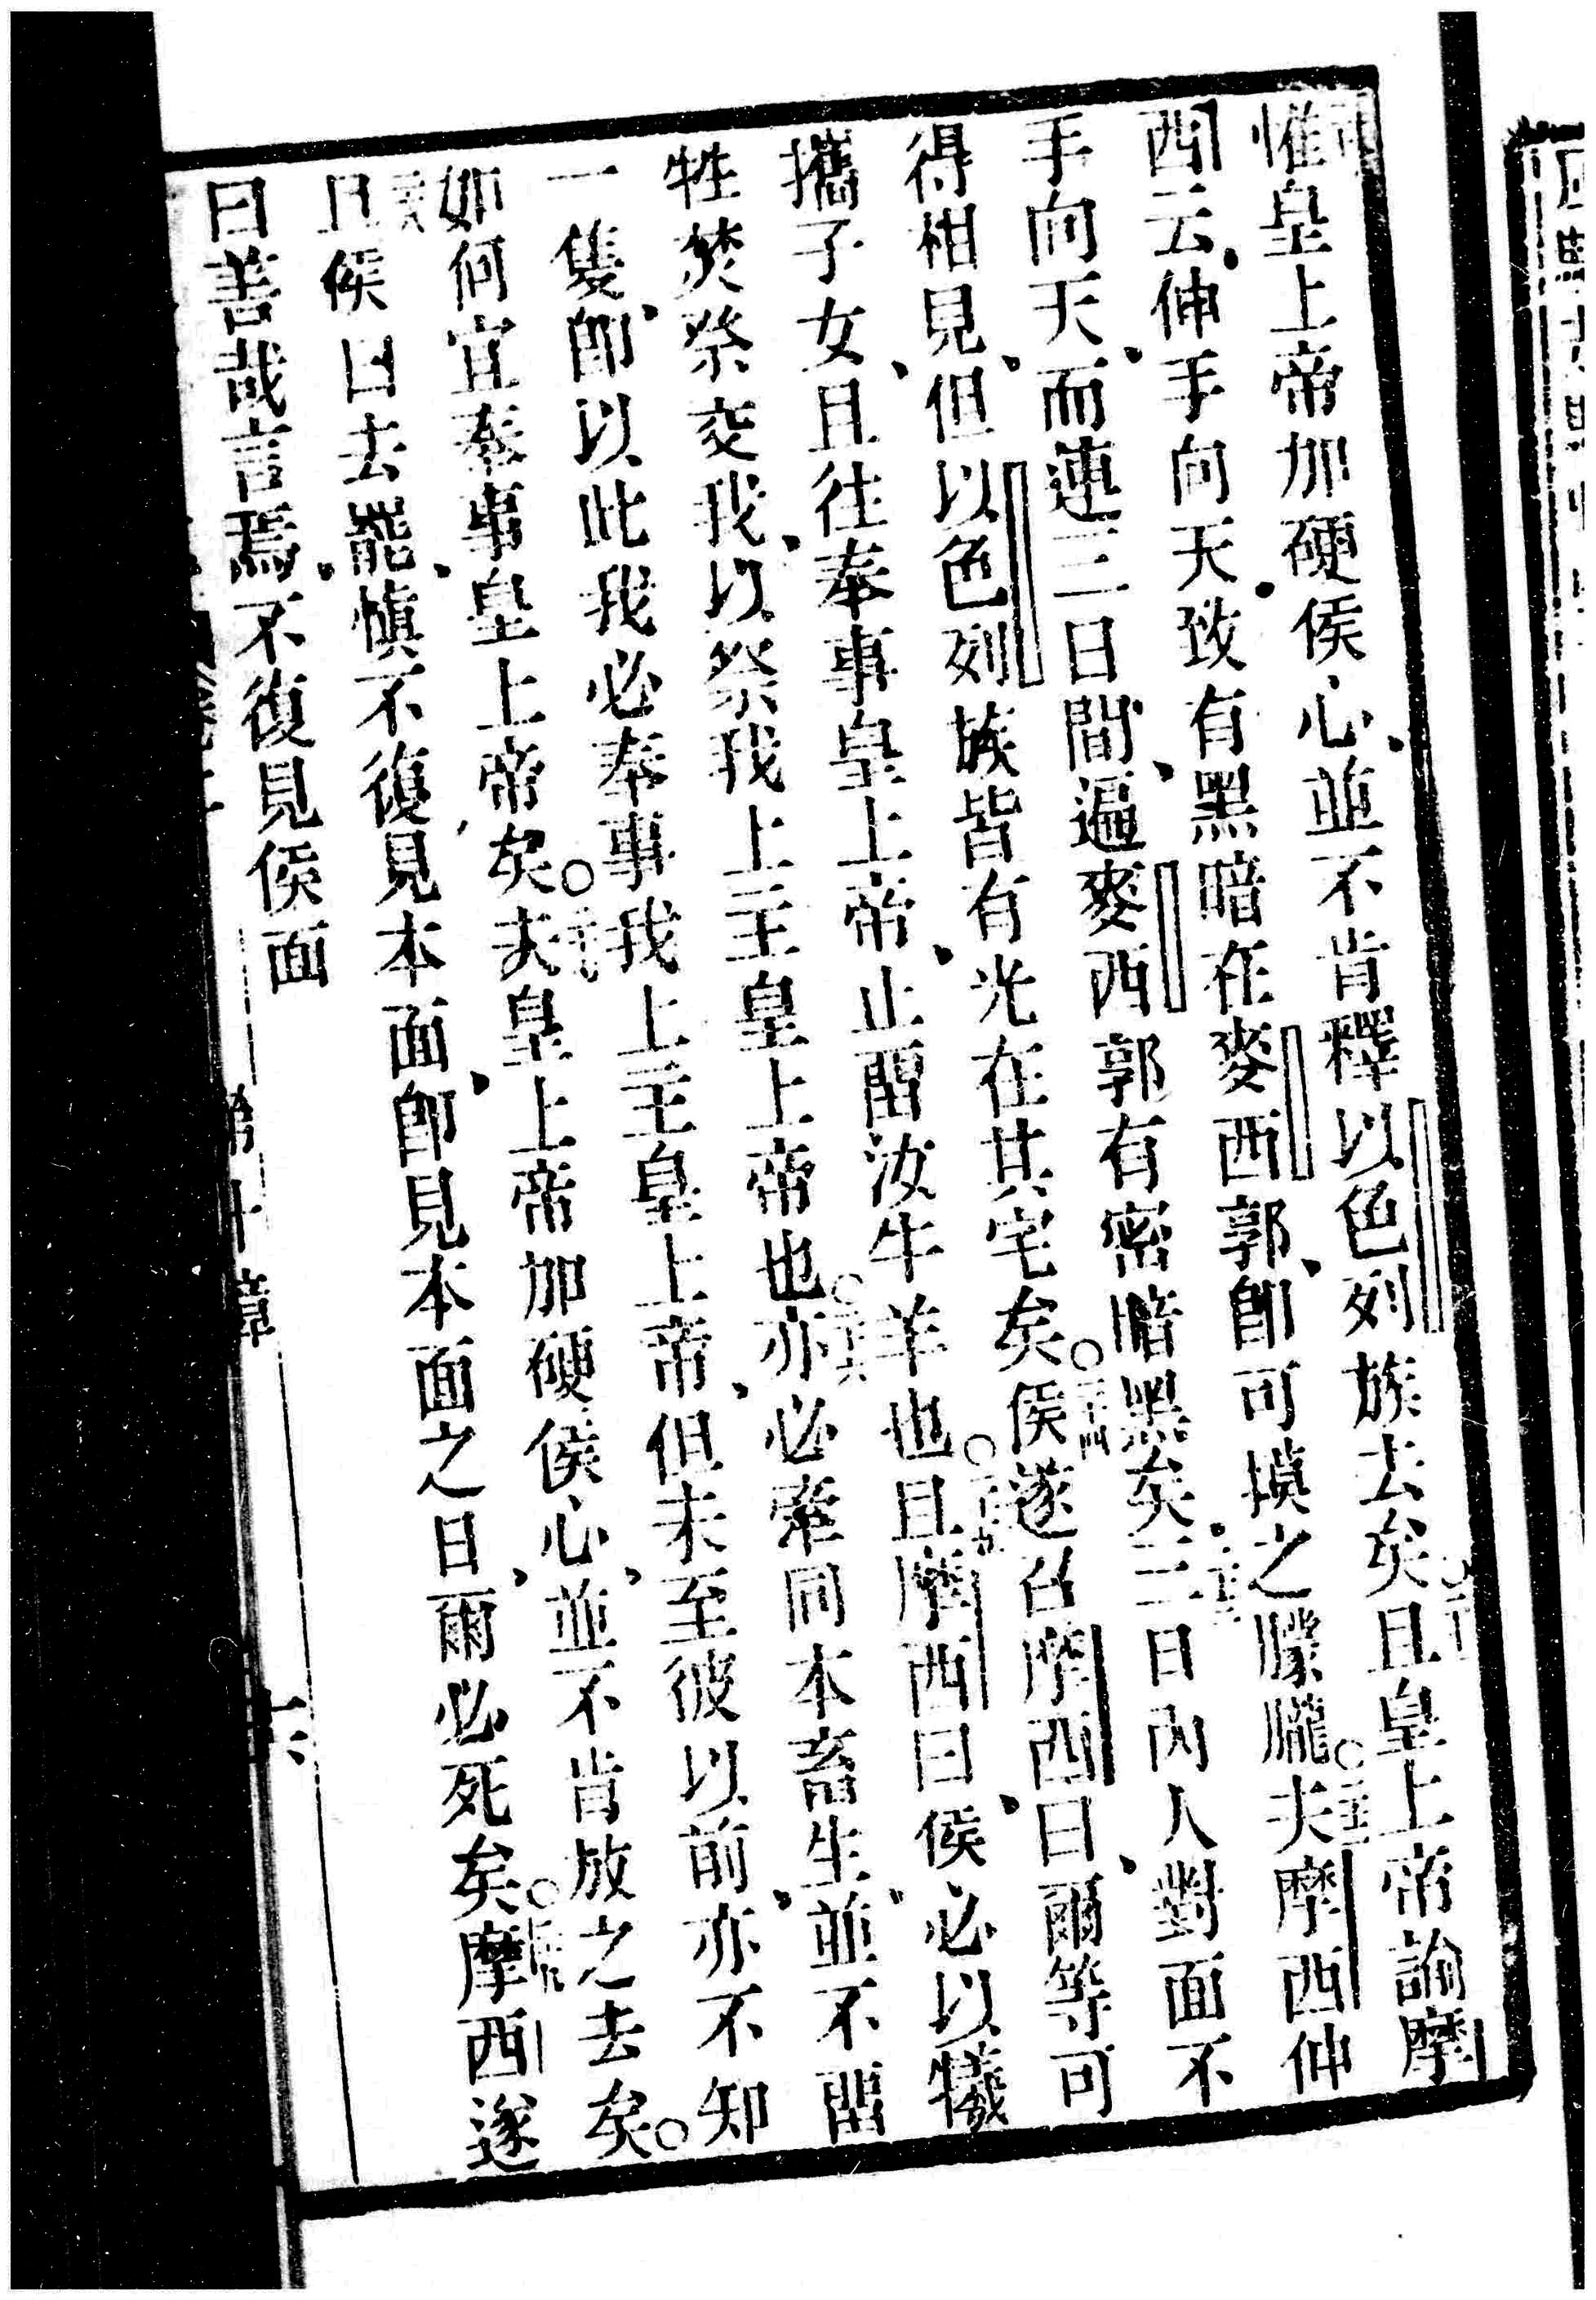 惟皇上帝加硬侯心、並不肯釋以色列族去矣○且皇上帝諭摩
西云、伸手向天、致有黑暗在麥西郭、卽可摸之朦朧○夫摩西伸
手向天、而連三日間、遍麥西郭有密暗黑矣、三日內人對面不
得相見、但以色列族皆有光在其宅矣○侯遂召摩西曰、爾等可
攜子女、且往奉事皇上帝、止留汝牛羊也○且摩西曰、侯必以犧
牲焚祭交我、以祭我上主皇上帝也○亦必牽同本畜生、並不留
一隻、卽以此我必奉事我上主皇上帝、但未至彼以前、亦不知
如何宜奉事皇上帝矣○夫皇上帝加硬侯心、並不肯放之去矣○
且侯曰去罷、愼不復見本面、卽見本面之日、爾必死矣○摩西遂
曰善哉言焉、不復見侯面
第十章